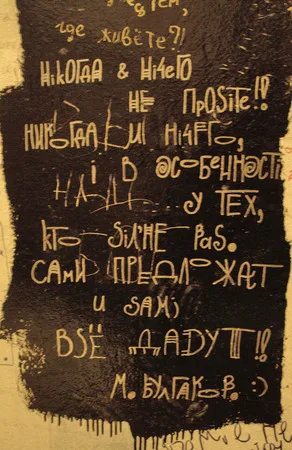 где живёте?!
НiКОГДА & НiЧЕГО
НЕ ПРОSiТЕ!!
НИКОГДА И НiЧЕГО,
i В ОСОБЕННОСТi
У ТЕХ,
КТО SiL'НЕ ВаS.
САМИ ПРЕДЛОЖАТ
И SAMi
ВSЁ ДАДУТ!!
М. БУЛГАКОВ. :)